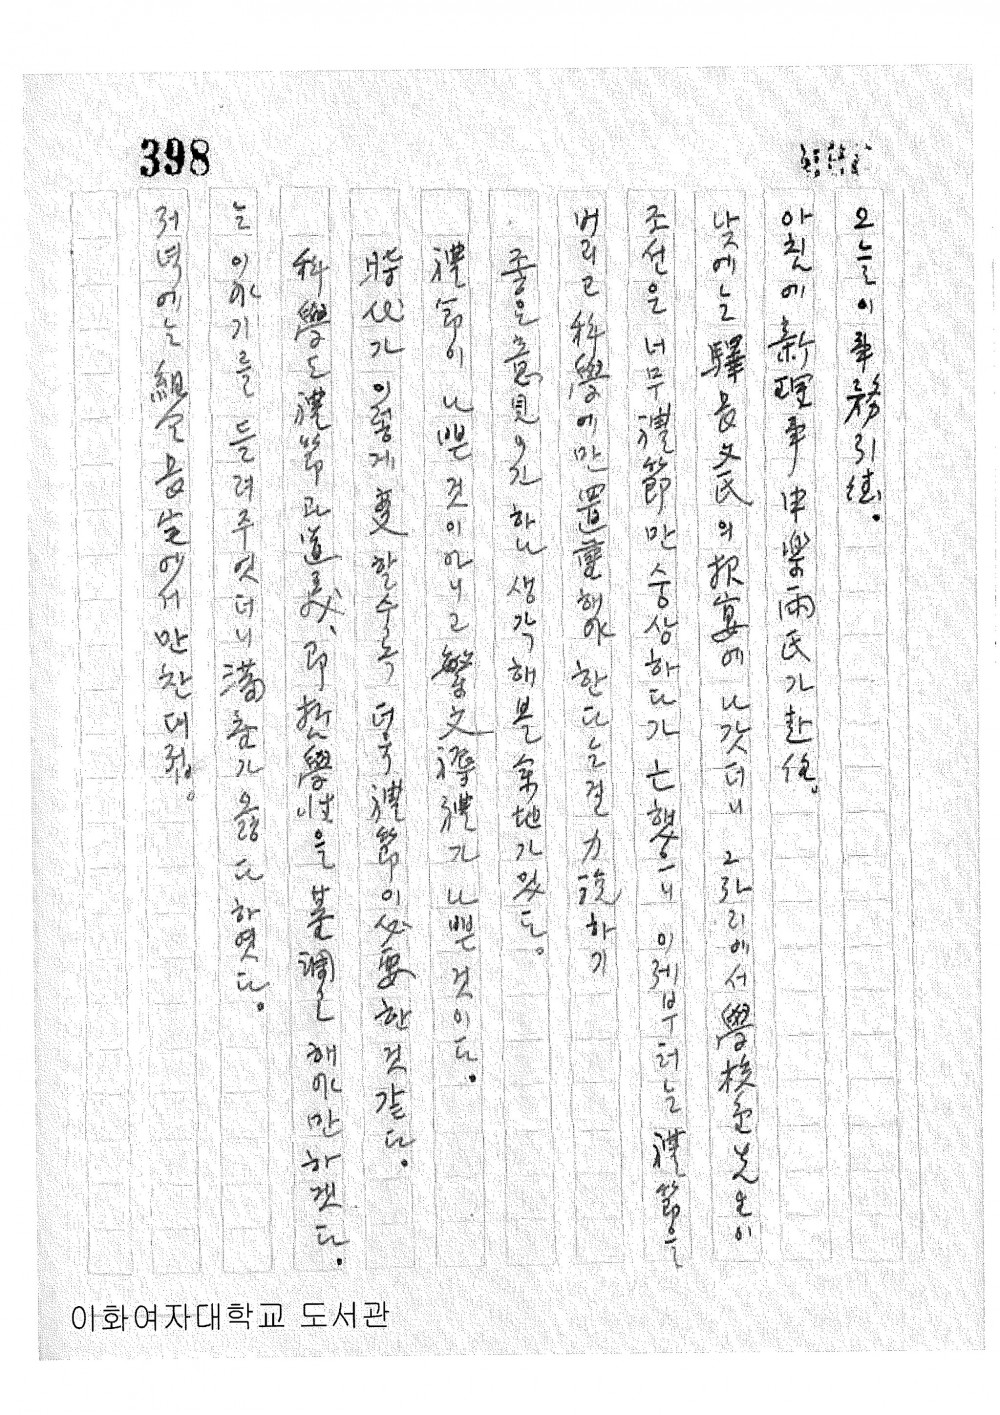 398
오늘이 事務引継.
아침에 新理事 申榮雨氏가 赴任.
낮에는 驛長文氏의 招宴에 나갓더니 그자리에서 學校 先生이
조선은 너무 禮節만 숭상하다가 亡했으니 이제부터는 禮節을
버리고 科學에만 置重해야 한다는걸 力說하기
좋은 意見인가 하나 생각해볼 余地가 있다.
禮節이 나쁜것이 아니고 繁文褥禮가 나쁜것이다.
時代가 이렇게 変할수록 더욱 禮節이 必要한것같다.
科學도 禮節과 道義, 即 哲學性을 基調로 해야만 하겟다.
는 이야기를 들려주엇더니 滿座가 옳다 하엿다.
저녁에는 組合長宅에서 만찬대접.
이화여자대학교 도서관